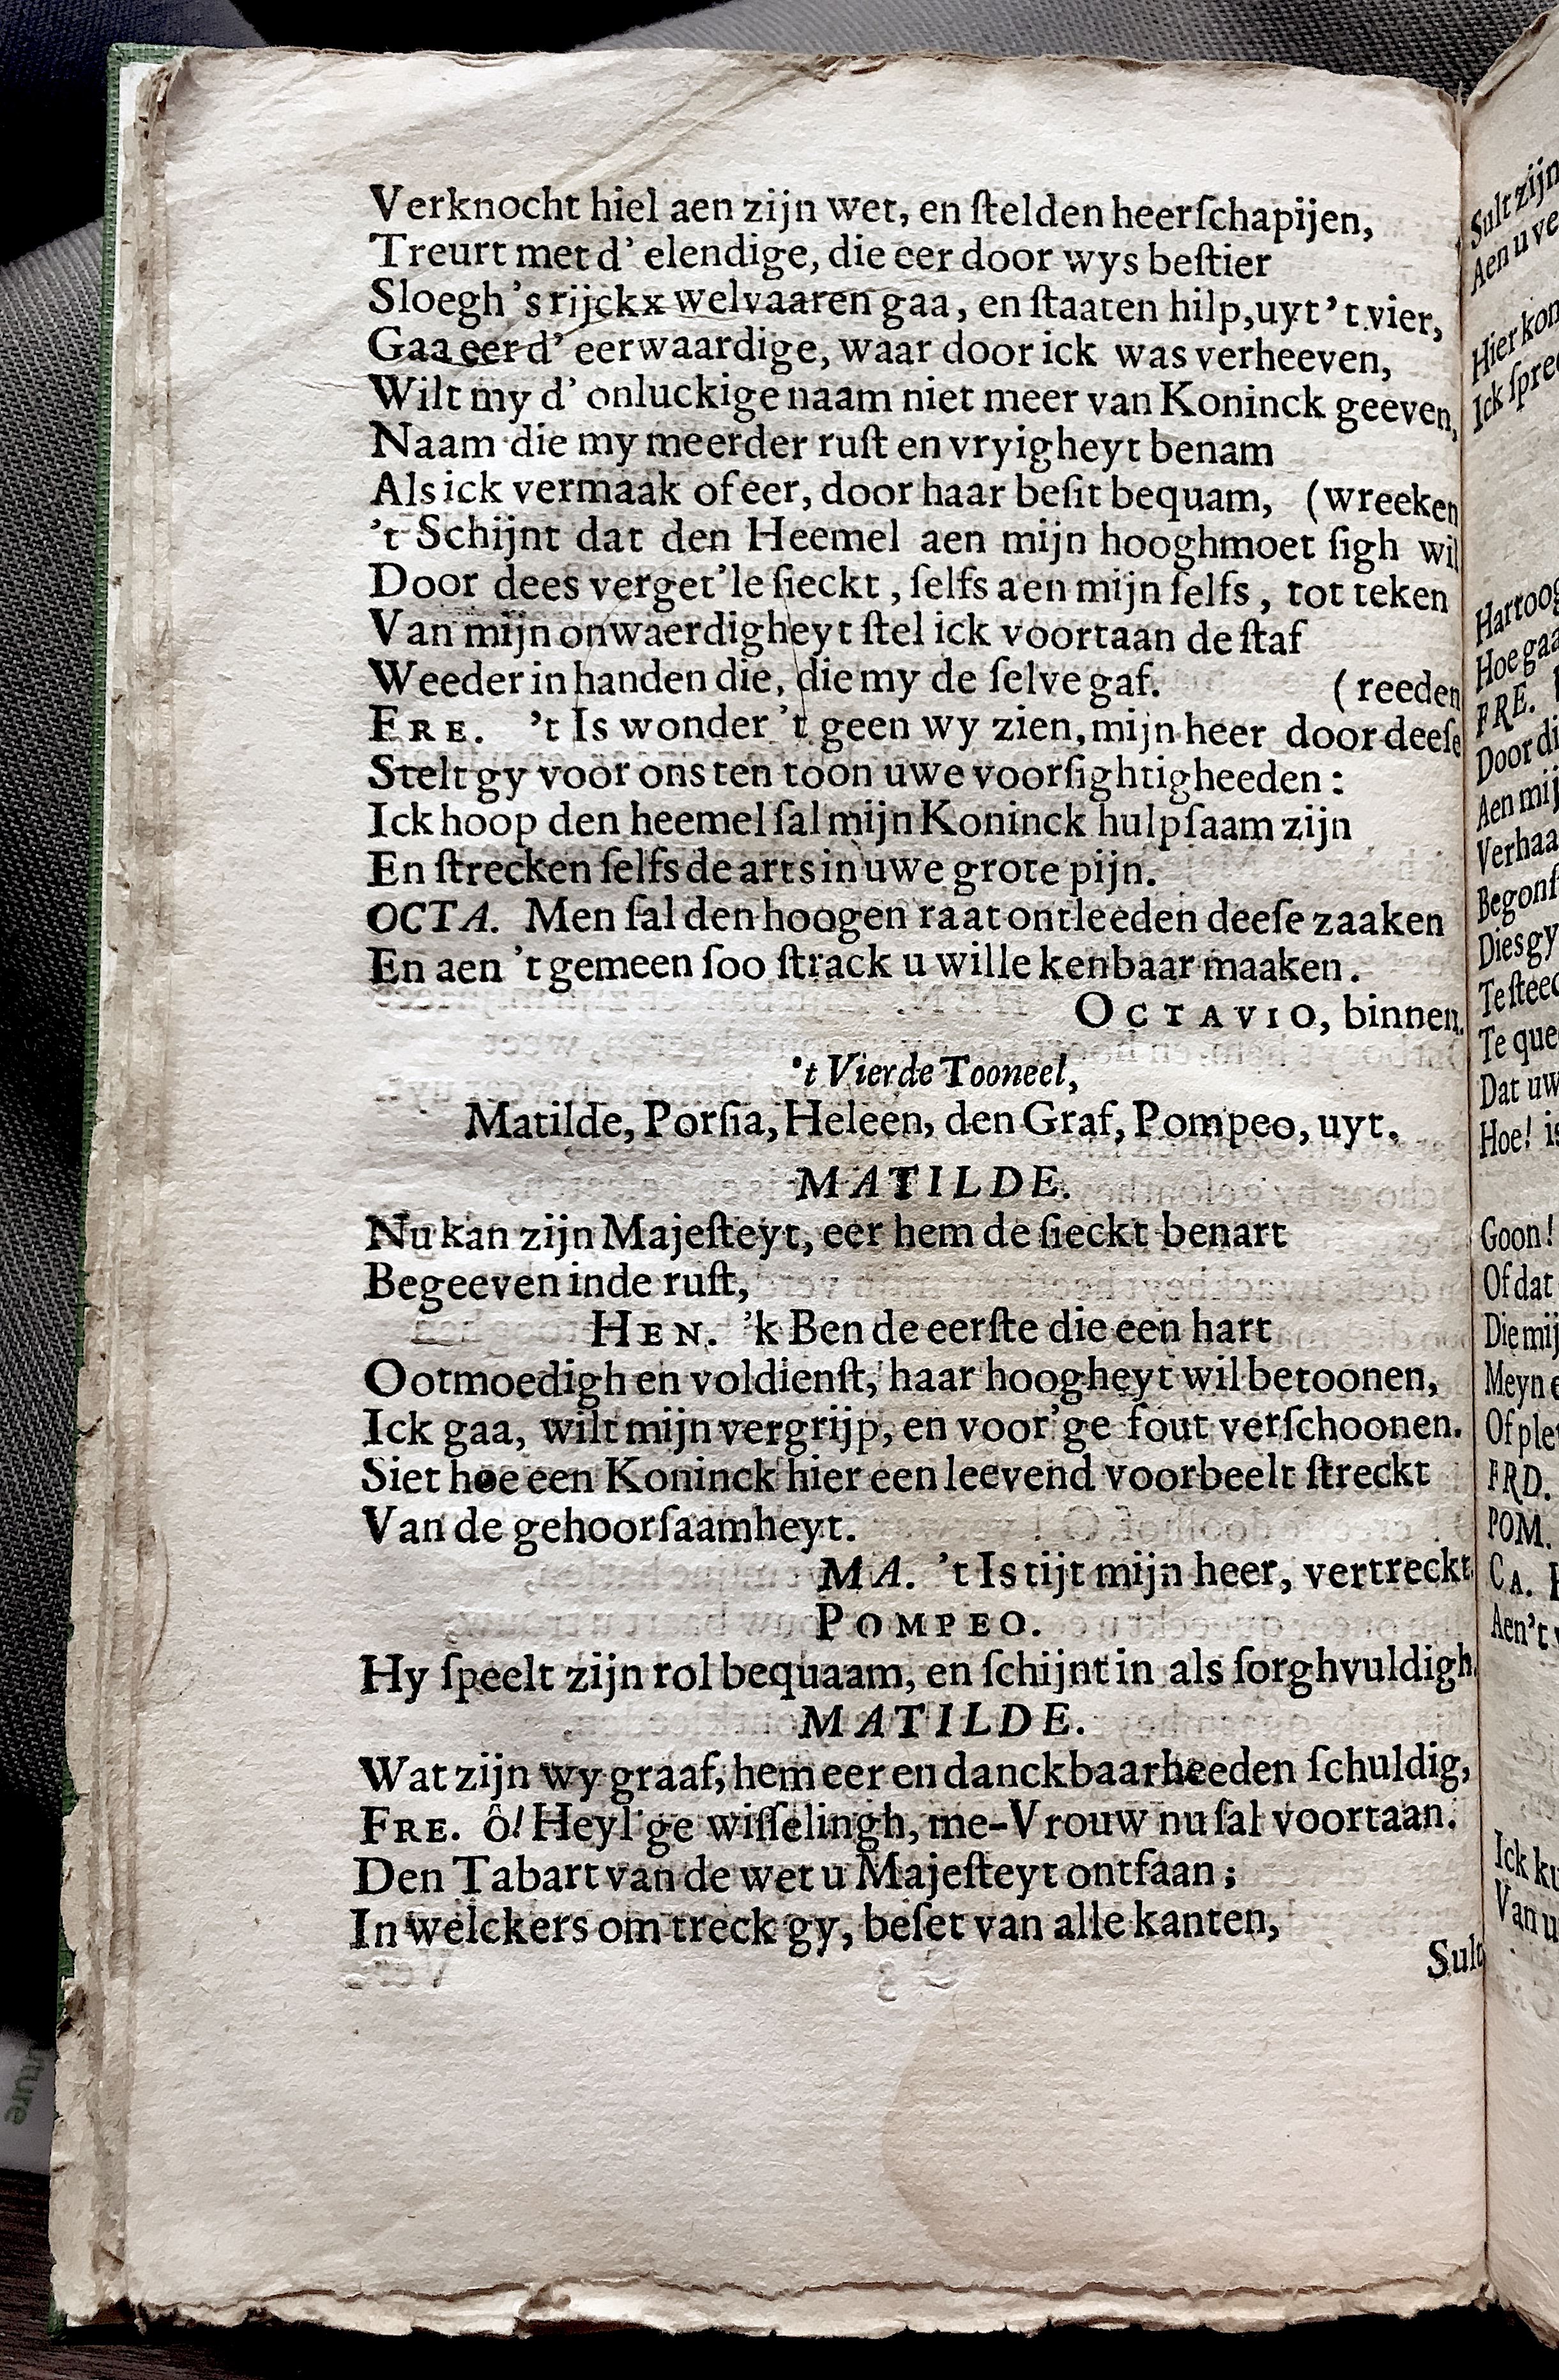 Verknocht hiel aen zijn wet, en ſtelden heerſchapijen,
Treurt met d' elendige, die eer door wys beſtier
Sloegh 's rijckx welvaaren gaa, en ſtaaten hilp, uyt 't vier,
Gaa eer d' eerwaardige, waar door ick was verheeven,
Wilt my d' onluckige naam niet meer van Koninck geeven,
Naam die my meerder ruſt en vryigheyt benam
Als ick vermaak of eer, door haar beſit bequam, (wreeken
't Schijnt dat den Heemel aen mijn hooghmoet ſigh wil
Door dees verget'le ſieckt, ſelfs aen mijn ſelfs, tot teken
Van mijn onwaerdigheyt ſtel ick voortaan de ſtaf
Weeder in handen die, die my de ſelve gaf. (reeden
FRE. 't Is wonder 't geen wy zien, mijn heer door deeſe
Stelt gy voor ons ten toon uwe voorſightigheeden:
Ick hoop den heemel ſal mijn Koninck hulpſaam zijn
En ſtrecken ſelfs de arts in uwe grote pijn.
OCTA. Men ſal den hoogen raat ontleeden deeſe zaaken
En aen 't gemeen ſoo ſtrack u wille kenbaar maaken.
OCTAVIO, binnen.
't Vierde Tooneel,
Matilde, Porſia, Heleen, den Graf, Pompeo, uyt.
MATILDE.
Nu kan zijn Majeſteyt, eer hem de ſieckt benart
Begeeven inde ruſt,
HEN. 'k Ben de eerſte die een hart
Ootmoedigh en voldienſt, haar hoogheyt wil betoonen,
Ick gaa, wilt mijn vergrijp, en voor'ge fout verſchoonen.
Siet hoe een Koninck hier een leevend voorbeelt ſtreckt
Van de gehoorſaamheyt.
MA. 't Is tijt mijn heer, vertreckt.
POMPEO.
Hy ſpeelt zijn rol bequaam, en ſchijnt in als ſorghvuldigh.
MATILDE.
Wat zijn wy graaf, hem eer en danckbaarheeden ſchuldig,
FRE. ô! Heyl'ge wiſſelingh, me-Vrouw nu ſal voortaan.
Den Tabart van de wet u Majeſteyt ontfaan;
In welckers om treck gy, beſet van alle kanten,
Sult
Sult zijn
Aen u ve
Hier kon
Ick ſpree
Hartoog
Hoe gaa
FRE.
Door di
Aen mij
Verhaa
Begonſ
Dies gy
Te ſteed
Te que
Dat uw
Hoe! is
Goon!
Of dat
Die mij
Meyn e
Of ple
FRD.
POM.
CA.
Aen't v
Ick ku
Van u